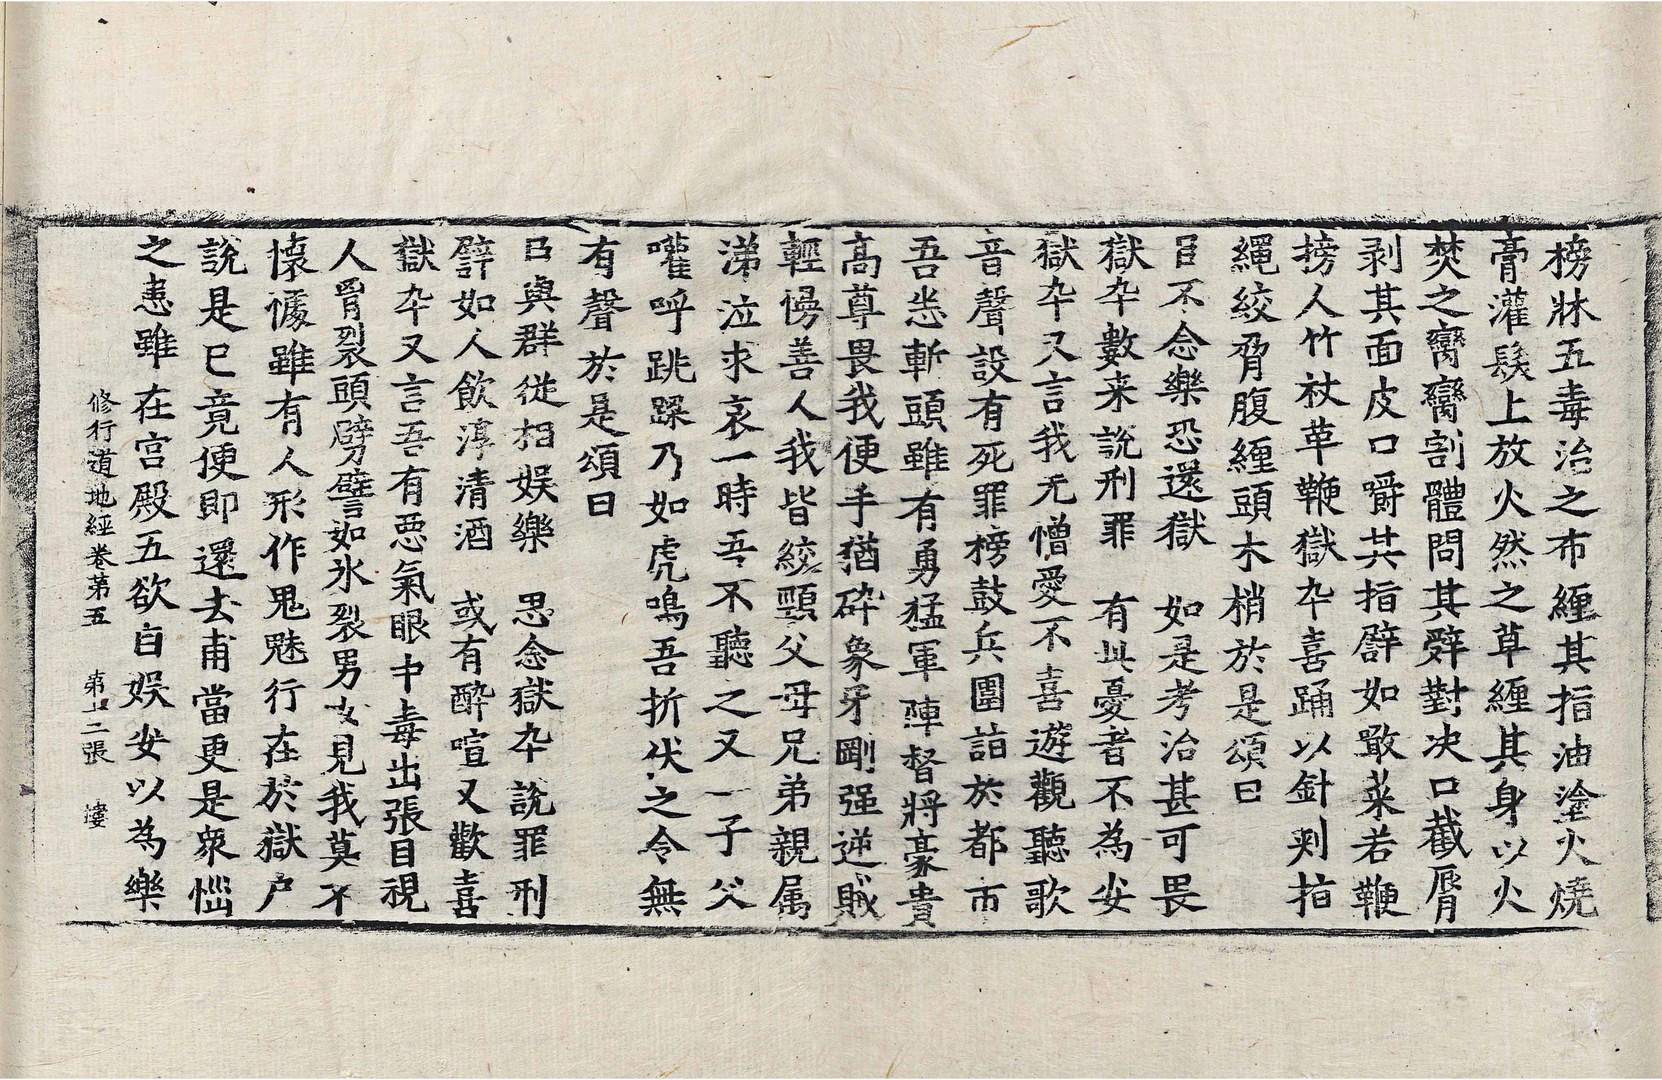 榜牀五毒治之布纒其指油塗火燒
膏灌髮上放火然之草纒其身以火
焚之臠臠割體問其辤對決口截脣
剥其面皮口嚼其指譬如噉菜若鞭
搒人竹杖革鞭獄卒喜踊以針刺指
繩絞脅腹纒頭木梢於是頌曰
且不念樂恐還獄　如是考治甚可畏
獄卒數来說刑罪　有此憂者不為安
獄卒又言我无憎愛不喜遊觀聽歌
音聲設有死罪榜鼓兵圍詣於都市
吾悉斬頭雖有勇猛軍陣督將豪貴
高尊畏我便手猶碎象牙剛强逆賊
輕慢善人我皆絞頸父母兄弟親属
涕泣求哀一時吾不聽之又一子父
嚾呼跳踤乃如虎鳴吾折伏之令無
有聲於是頌曰
已與群從相娱樂　思念獄卒說罪刑
譬如人飲淳清酒　或有醉喧又歡喜
獄卒又言吾有惡氣眼中毒出張目視
人胷裂頭劈譬如氷裂男女見我莫不
懷懅雖有人形作鬼魅行在於獄户
說是已竟便即還去甫當更是衆惱
之患雖在宫殿五欲自娱安以為樂
修行道地經卷第五　第十二張　𡫏